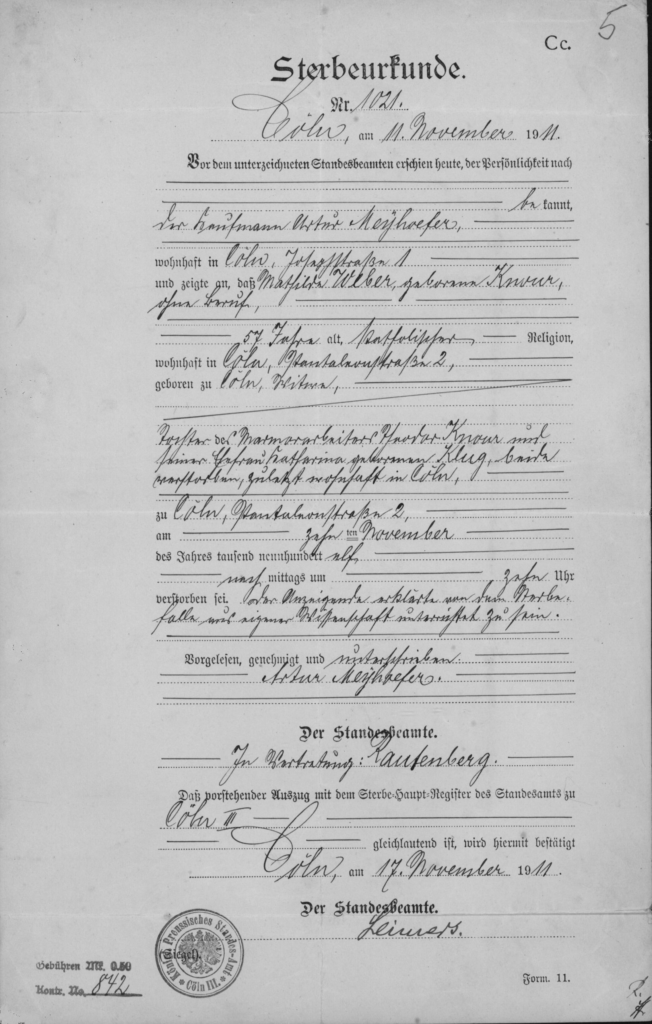 5
Cc.
Sterbeurkunde.
Nr. 1021.
Cöln, am 11. November 1911.
Vor dem unterzeichneten Standesbeamten erschien heute, der Persönlichkeit nach
be kannt,
der Kaufmann Artur Meyhoefer,
wohnhaft in Cöln, Josephstraße 1
und zeigte an, daß Mathilde Weber, geborene Knour,
ohne Beruf,
57 Jahre alt, katholischer Religion,
wohnhaft in Cöln, Pantaleonstraße 2,
geboren zu Cöln, Witwe,
Tochter des Marmorarbeiters Theodor Knour und
seiner Ehefrau Katharina geborenen Klug, beide
verstorben, zuletzt wohnhaft in Cöln,
zu Cöln, Pantaleonstraße 2,
am zehn ten November
des Jahres tausend neunhundert elf
nach mittags um zehn Uhr
verstorben sei. Der Anzeigende erklärte von dem Sterbe-
falle aus eigener Wissenschaft unterrichtet zu sein.
Vorgelesen, genehmigt und unterschrieben
Artur Meyhoefer.
Der Standesbeamte.
In Vertretung: Rautenberg.
Daß vorstehender Auszug mit dem Sterbe-Haupt-Register des Standesamts zu
Cöln III
gleichlautend ist, wird hiermit bestätigt
Cöln, am 17. November 1911.
Der Standesbeamte.
Leimers.
(Siegel).
Königlich Preussisches Standes-Amt
Cöln III.
Gebühren Mk. 0.50
Kontr. No. 842
Form. 11.